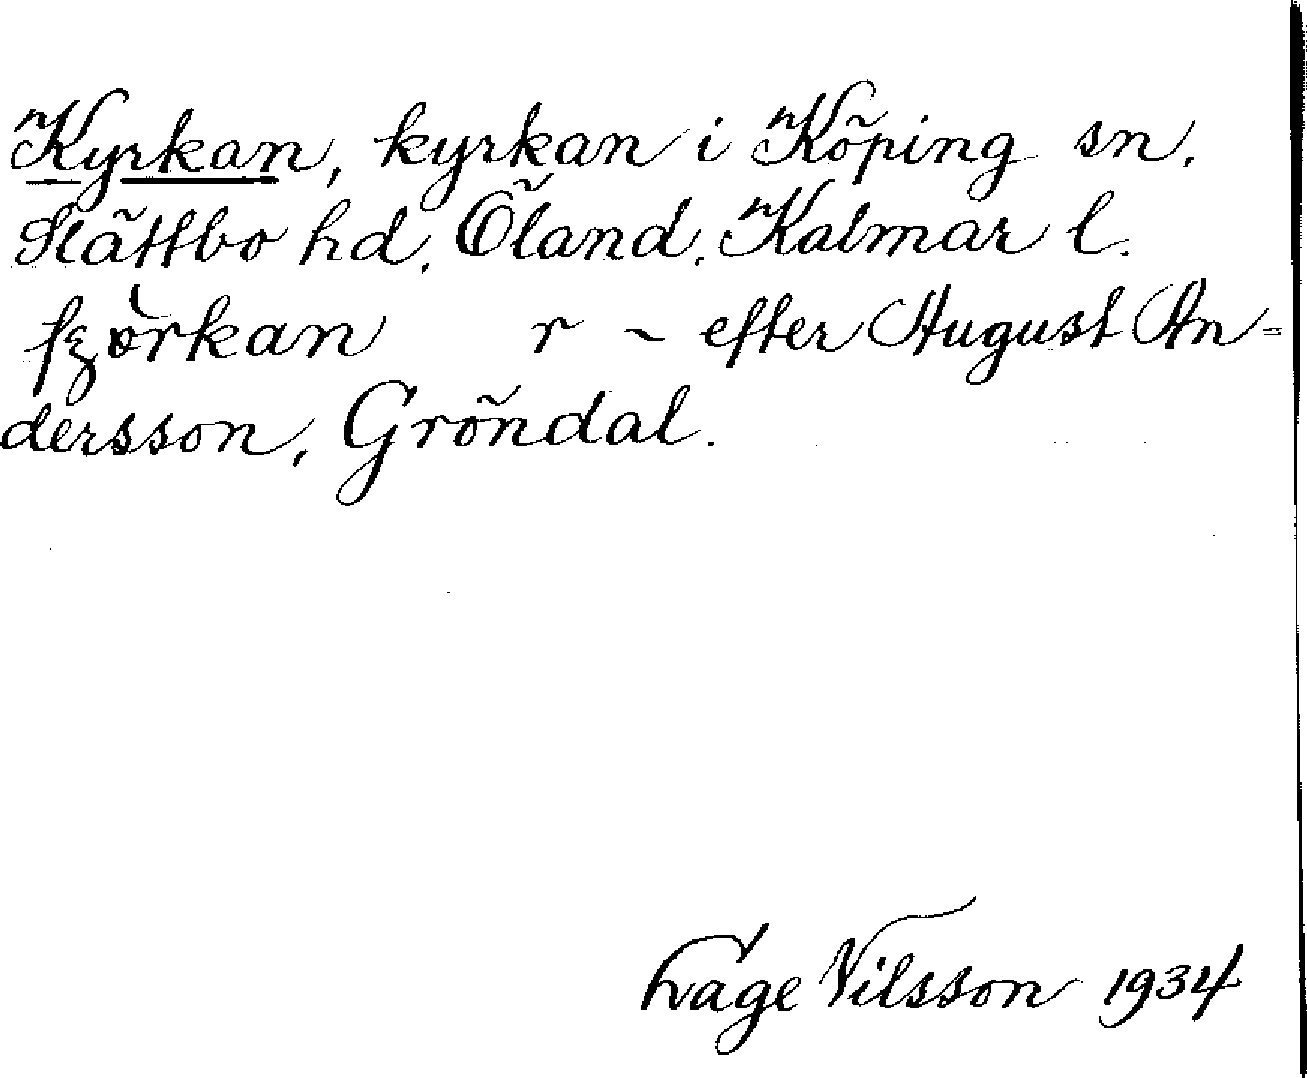 Kyrkan, kyrkan i Köping sn.
Slättbo hd. Öland. Kalmar l.
r ~ efter August An-
dersson, Gröndal.
Nilsson 1934